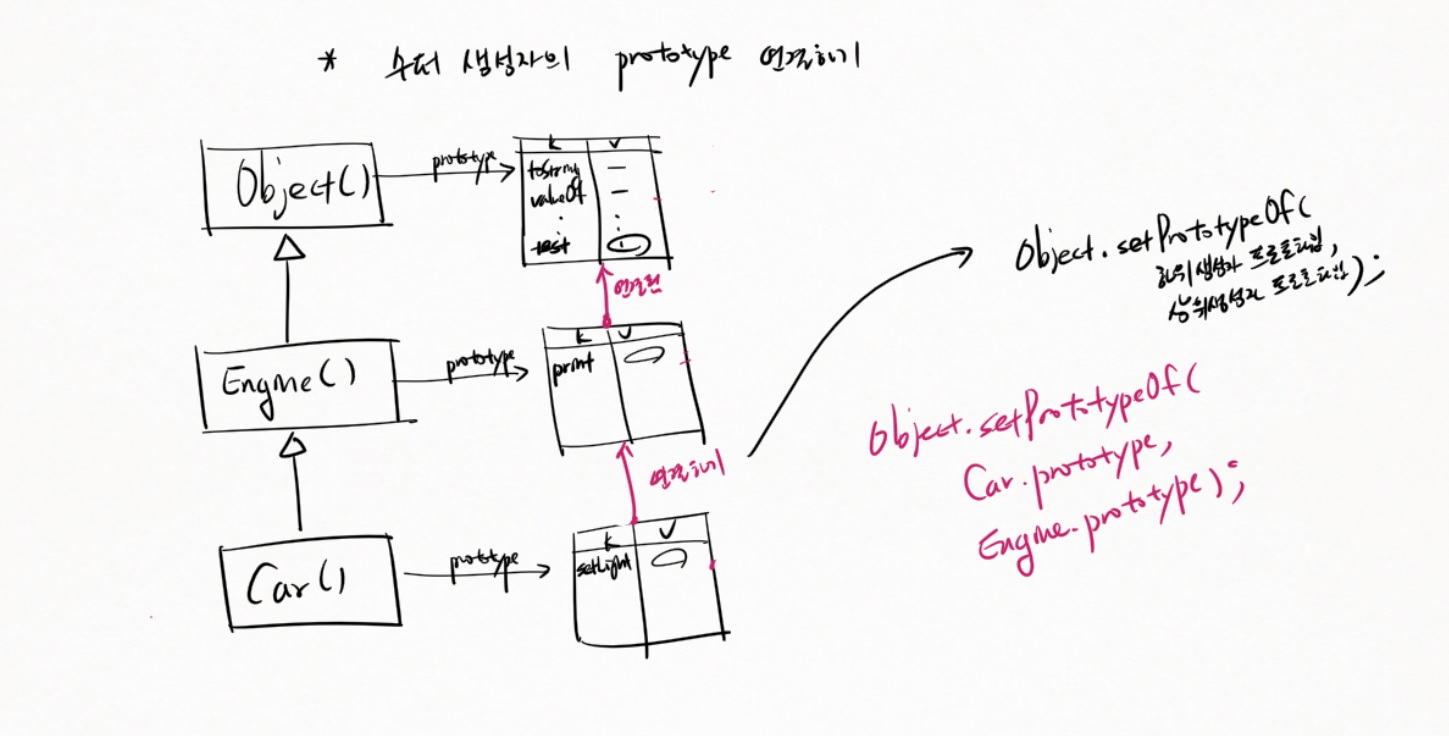 * 수퍼 생성자의 prototype 연결하기
Object()
prototype
K V
toString
valueOf
test
연결된
Engine()
prototype
K V
print
연결하기
Car()
prototype
K V
setLight
Object.setPrototypeOf(
하위생성자 프로토타입,
상위생성자 프로토타입);
Object.setPrototypeOf(
Car.prototype,
Engine.prototype);